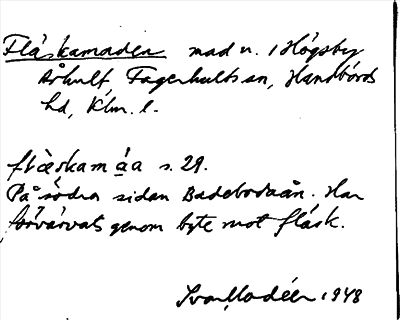 Fläskamaden mad n. i Högsby
Århult, Fagerhults sn, Handbörds
hd, Klm. l.
flæskamáa s. 29.
På södra sidan Badebodaån. Har
förvärvats genom byte mot fläsk.
Ivar Modéer 1948